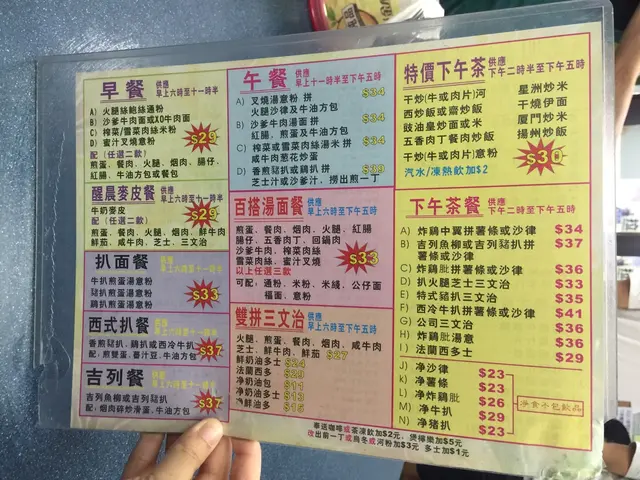 早餐 供應 早上六時至十一時半
A) 火腿絲鮑絲通粉
B) 沙爹牛肉面或XO牛肉面
C) 榨菜/雪菜肉絲米粉
D) 蜜汁叉燒意粉
$29
配 (任選二款)
煎蛋、餐肉、火腿、烟肉、腸仔、
紅腸、牛油方包或餐包
醒晨麥皮餐 供應 早上六時至十一時半
牛奶麥皮
$29
配 (任選二款)
煎蛋、餐肉、火腿、烟肉、鮮牛肉
鮮茄、咸牛肉、芝士、三文治
扒面餐 供應 早上六時至十一時半
牛扒煎蛋湯意粉
豬扒煎蛋湯意粉
鷄扒煎蛋湯意粉
$33
西式扒餐 供應 早上六時至十一時半
香煎豬扒、鷄扒或西冷牛扒
配, 煎雙蛋、薯汁豆、牛油方包
$37
吉列餐 供應 早上六時至十一時半
吉列魚柳或吉列豬扒
配: 烟肉碎炒滑蛋, 牛油方包
$37
午餐 供應 早上十一時半至下午五時
A) 叉燒湯意粉 拼 $34
火腿沙律及牛油方包
B) 沙爹牛肉湯面 拼 $34
紅腸, 煎蛋及牛油方包
C) 榨菜或雪菜肉絲湯米 拼 $34
咸牛肉葱花炒蛋
D) 香煎豬扒或鷄扒拼 $39
芝士汁或沙爹汁、撈出前一丁
百搭湯面餐 供應 早上六時至下午五時
煎蛋、餐肉、烟肉、火腿、紅腸
腸仔、五香肉丁、回鍋肉
沙爹牛肉, 榨菜肉絲
雪菜肉絲、蜜汁叉燒
以上任選三款
$33
可配, 通粉、米粉、米綫、公仔面
福面、意粉
雙拼三文治 供應 早上六時至下午五時
火腿、煎蛋、餐肉、烟肉、咸牛肉
芝士、鮮牛肉、鮮茄 $27
鮮奶油多士 $24
法蘭西多 $29
净奶油包 $11
净奶油多 $13
净鮮油多 $15
特價下午茶 供應 下午二時半至下午五時
干炒(牛或肉片)河 星洲炒米
西炒飯或齋炒飯 干燒伊面
豉油皇炒面或米 厦門炒米
五香肉丁餐肉炒飯 揚州炒飯
干炒(牛或肉片)意粉
汽水/凍熱飲加$2
下午茶餐 供應 下午二時至下午五時
A) 炸鷄中翼拼薯條或沙律 $34
B) 吉列魚柳或吉列豬扒拼 $37
薯條或沙律
C) 炸鷄髀拼薯條或沙律 $36
D) 扒火腿芝士三文治 $33
E) 特式豬扒三文治 $35
F) 西冷牛扒拼薯條或沙律 $41
G) 公司三文治 $36
H) 炸鷄髀湯意 $36
I) 法蘭西多士 $29
J) 净沙律 $23
K) 净薯條 $23
L) 净炸鷄髀 $26
M) 净牛扒 $29
N) 净豬扒 $23
净食不包飲品
奉送咖啡或茶凍飲加$2元, 煲檸樂加$5元
改出前一丁或烏冬或河粉加$3元 多士加$1元